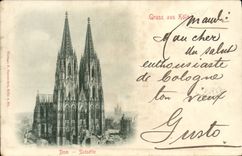 Gruss aus Köln
Mon cher
un salut
enthousiaste
de Cologne
ton vieux
Gusto
Dom — Südseite